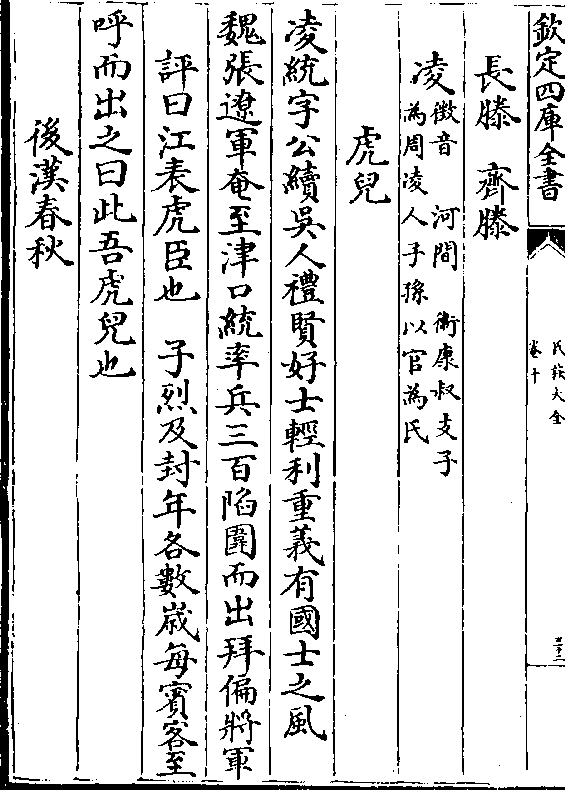 欽定四庫全書
氏族大全
卷十
三十二
長滕　齊滕
凌
徵音　河間　衛康叔支子
為周凌人子孫以官為氏
虎兒
凌統字公續吳人禮賢好士輕利重義有國士之風
魏張遼軍奄至津口統率兵三百陷圍而出拜偏將軍
評曰江表虎臣也　子烈及封年各數歲每賓客至
呼而出之曰此吾虎兒也
後漢春秋